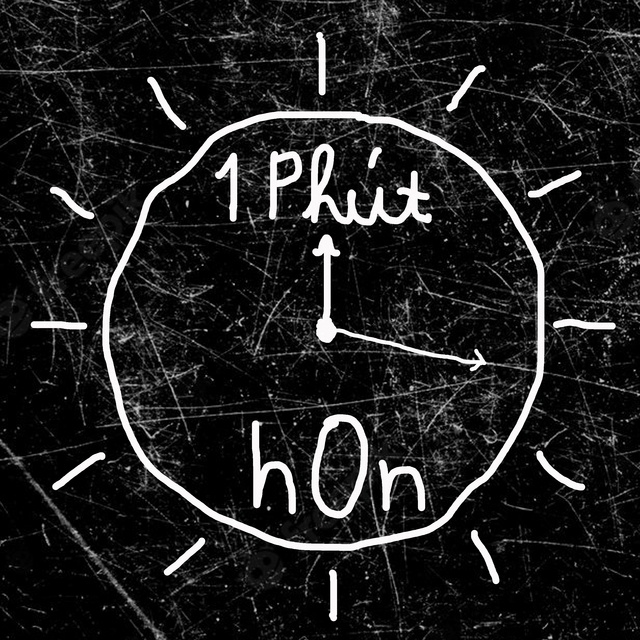 1 Phút
hOn